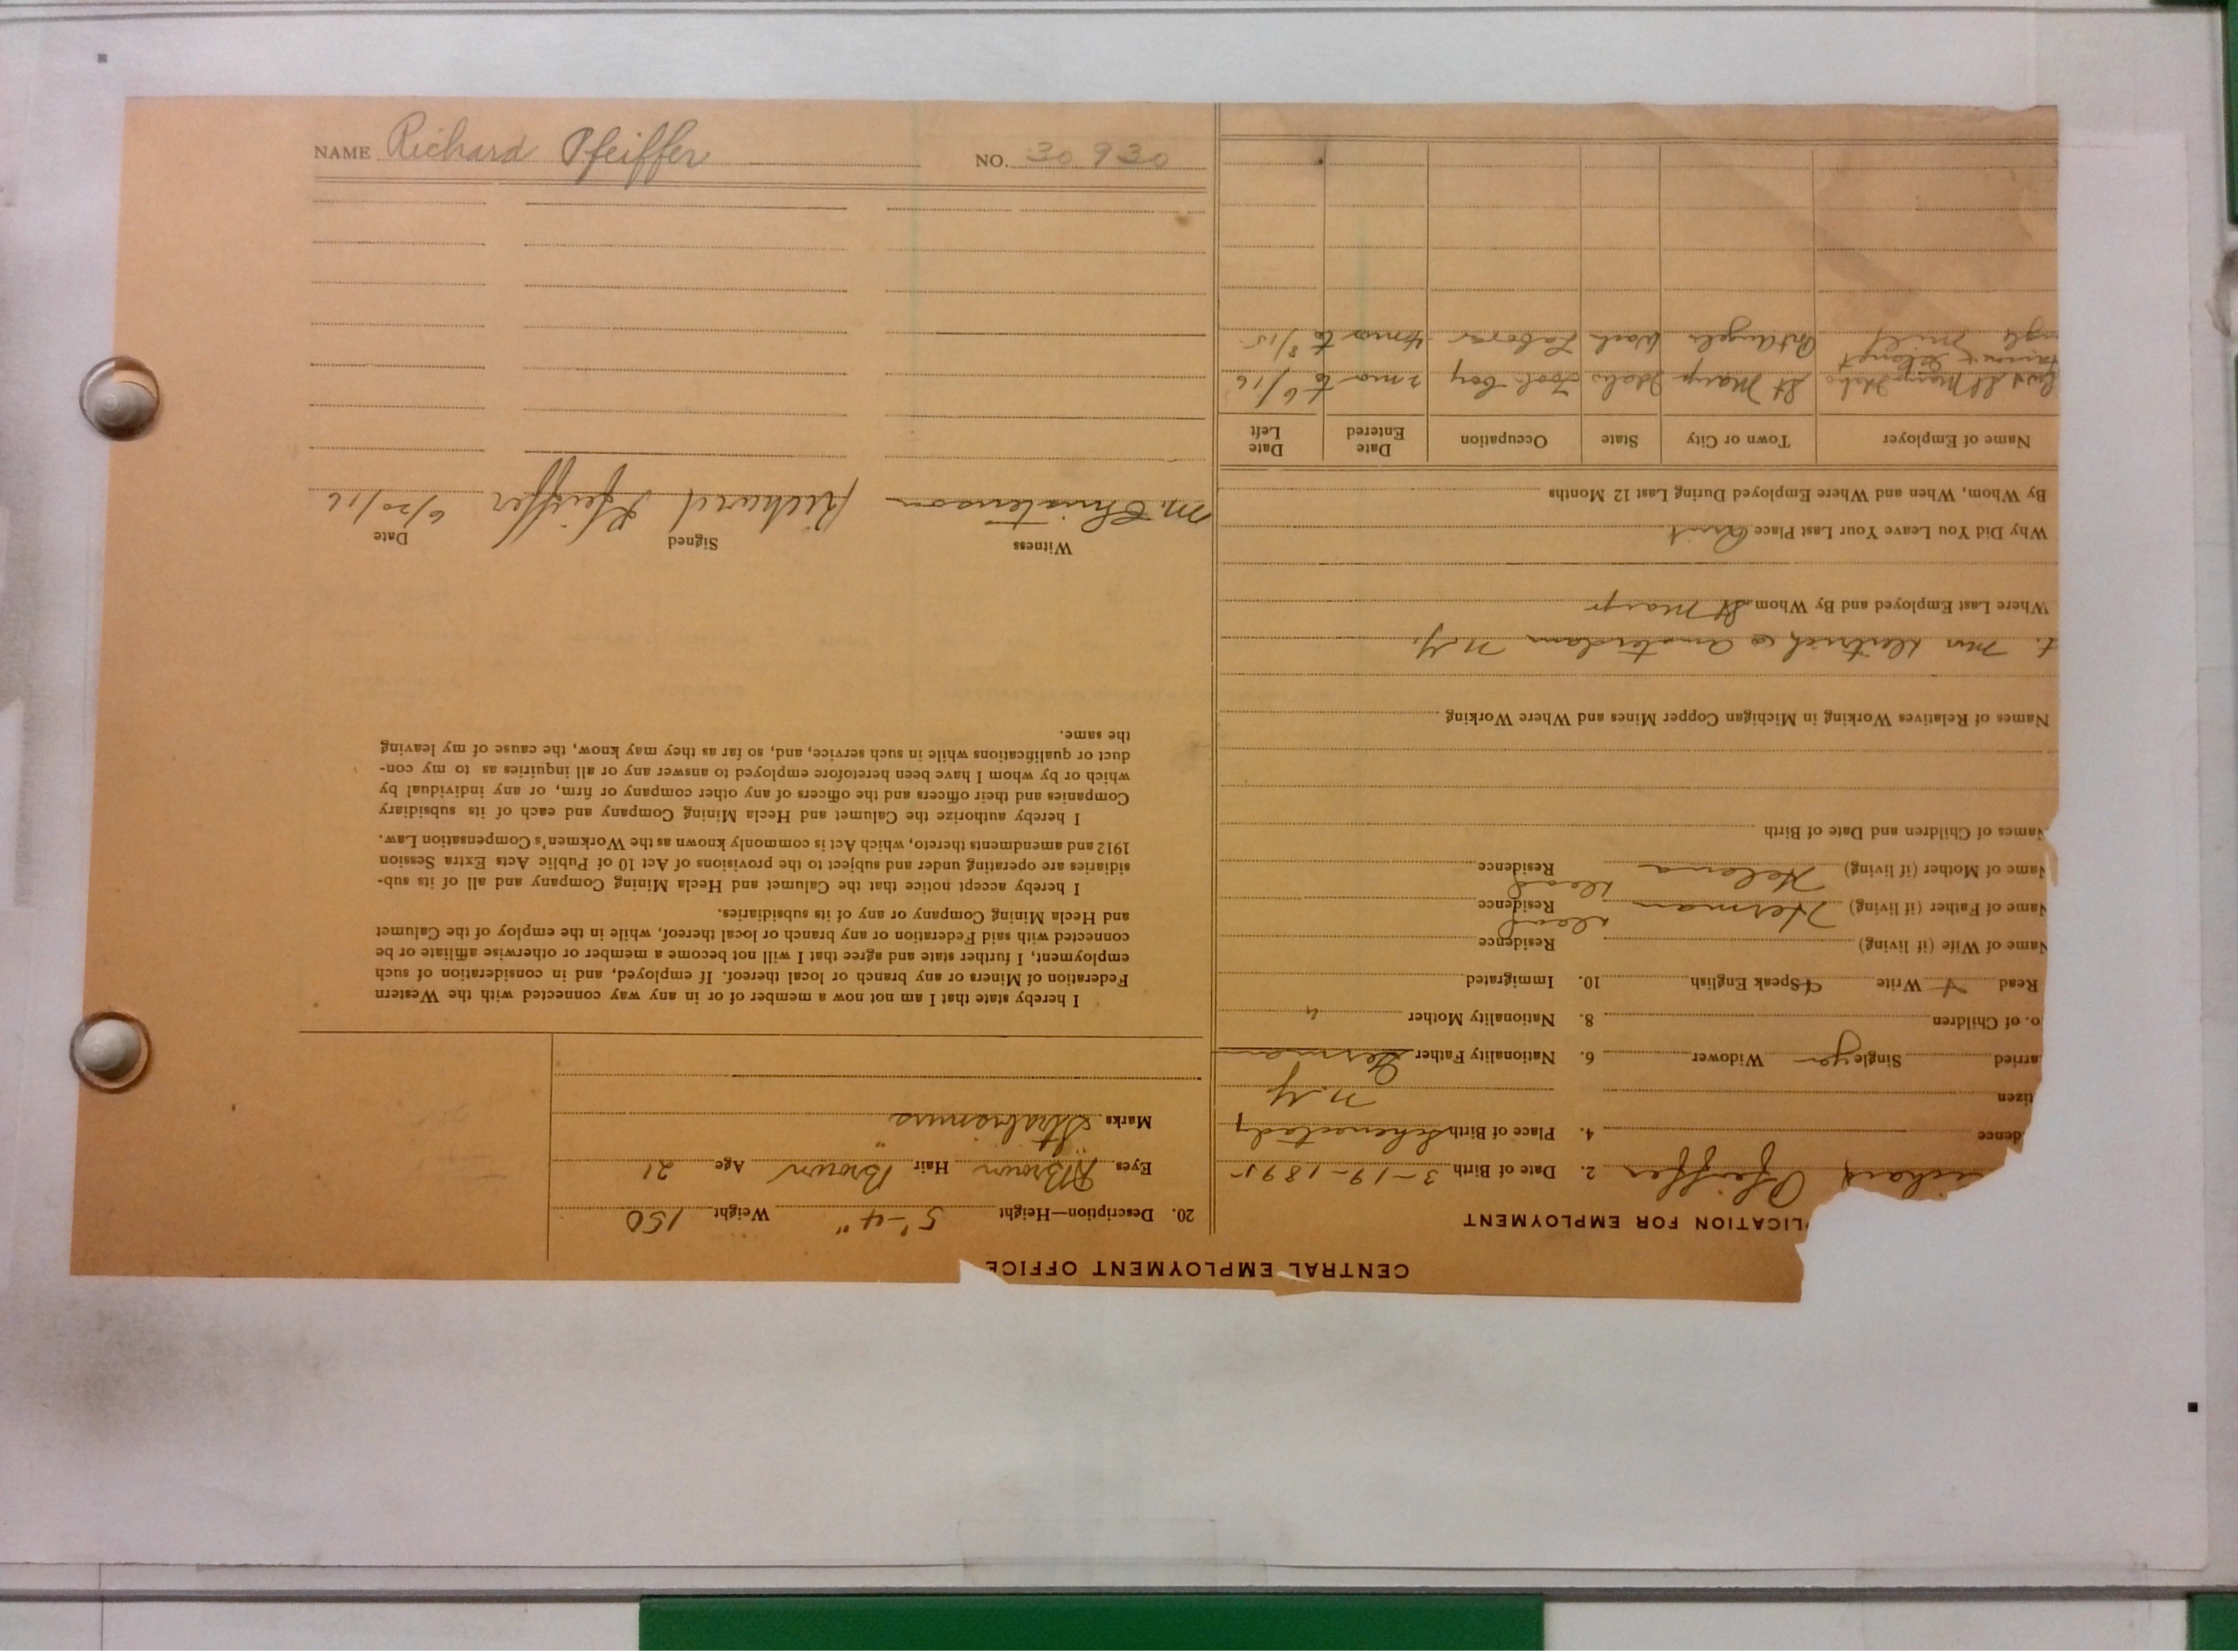 NAME Richard Pfeiffer NO. 30930
CENTRAL EMPLOYMENT OFFICE
PLICATION FOR EMPLOYMENT
ichard Pfeiffer 2. Date of Birth 3-19-1895
dence 4. Place of Birth Schenectady
tizen N.Y.
arried Single yes Widower 6. Nationality Father German
o. of Children 8. Nationality Mother "
Read Write Speak English 10. Immigrated
Name of Wife (if living) Residence
Name of Father (if living) Herman Residence dead
Name of Mother (if living) Helena Residence dead
Names of Children and Date of Birth
Names of Relatives Working in Michigan Copper Mines and Where Working
Mrs Amsterdam N.Y.
Where Last Employed and By Whom St Marys
Why Did You Leave Your Last Place Quit
By Whom, When and Where Employed During Last 12 Months
Name of Employer Town or City State Occupation Date Entered Date Left
St Marys Idaho Tool boy 2 mo to 6/16
Mill Port Angeles Wash Laborer 4 mos to 8/15
20. Description—Height 5'-4" Weight 150
Eyes Brown Hair Brown Age 21
Marks Strabismus
I hereby state that I am not now a member of or in any way connected with the Western
Federation of Miners or any branch or local thereof. If employed, and in consideration of such
employment, I further state and agree that I will not become a member or otherwise affiliate or be
connected with said Federation or any branch or local thereof, while in the employ of the Calumet
and Hecla Mining Company or any of its subsidiaries.
I hereby accept notice that the Calumet and Hecla Mining Company and all of its sub-
sidiaries are operating under and subject to the provisions of Act 10 of Public Acts Extra Session
1912 and amendments thereto, which Act is commonly known as the Workmen's Compensation Law.
I hereby authorize the Calumet and Hecla Mining Company and each of its subsidiary
Companies and their officers and the officers of any other company or firm, or any individual by
which or by whom I have been heretofore employed to answer any or all inquiries as to my con-
duct or qualifications while in such service, and, so far as they may know, the cause of my leaving
the same.
Witness Signed Date
M. Christenson Richard Pfeiffer 6/20/16